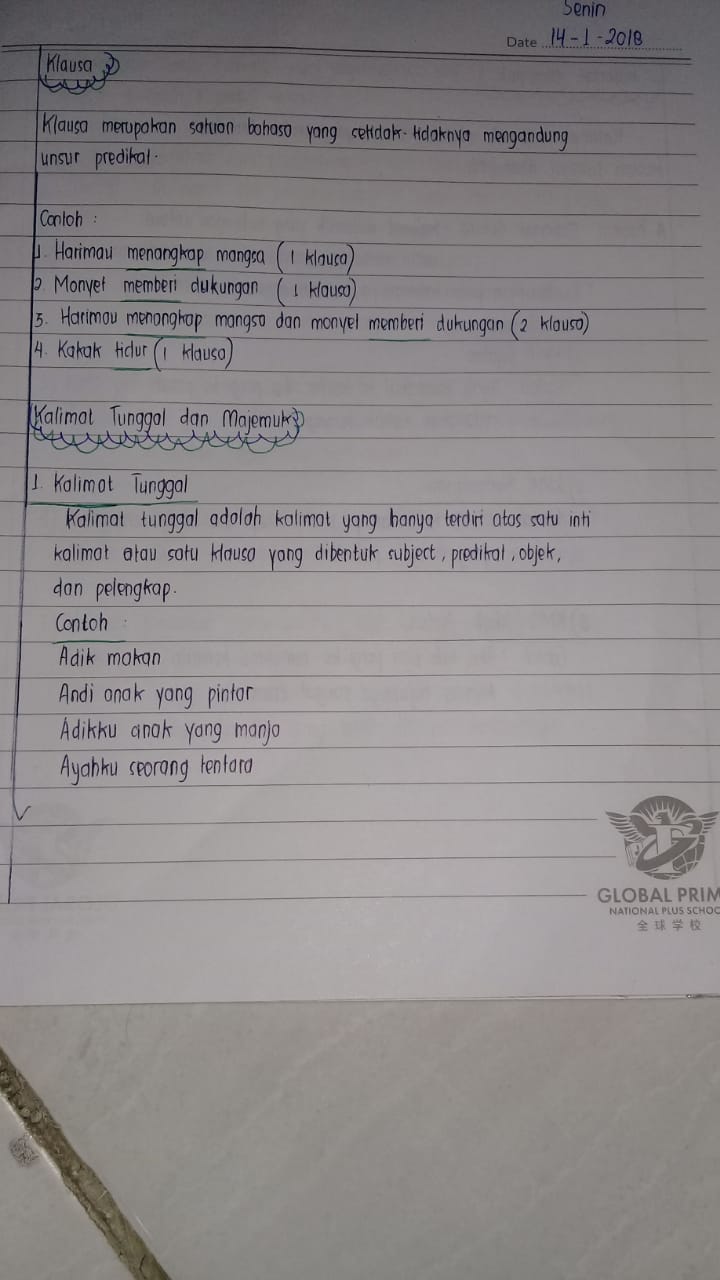 Senin
Date 14-1-2018
Klausa
Klausa merupakan satuan bahasa yang setidak-tidaknya mengandung
unsur predikat.
Contoh :
1. Harimau menangkap mangsa (1 klausa)
2. Monyet memberi dukungan (1 klausa)
3. Harimau menangkap mangsa dan monyet memberi dukungan (2 klausa)
4. Kakak tidur (1 klausa)
Kalimat Tunggal dan Majemuk
1. Kalimat Tunggal
Kalimat tunggal adalah kalimat yang hanya terdiri atas satu inti
kalimat atau satu klausa yang dibentuk subject, predikat, objek,
dan pelengkap.
Contoh :
Adik makan
Andi anak yang pintar
Adikku anak yang manja
Ayahku seorang tentara
GLOBAL PRIM
NATIONAL PLUS SCHOO
全球学校